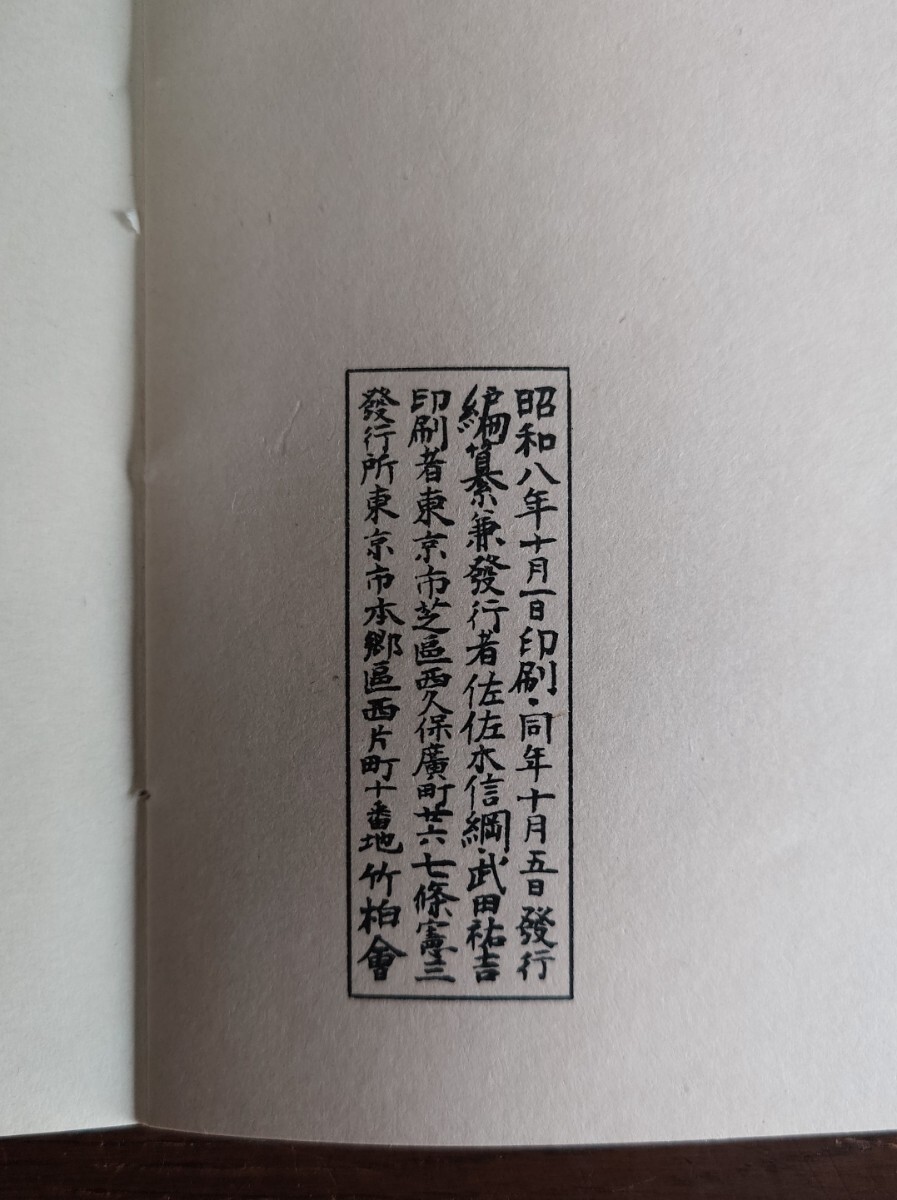 昭和八年十月一日印刷・同年十月五日發行
編纂兼發行者佐佐木信綱・武田祐吉
印刷者東京市芝區西久保廣町廿六七條憲三
發行所東京市本鄕區西片町十番地竹柏會